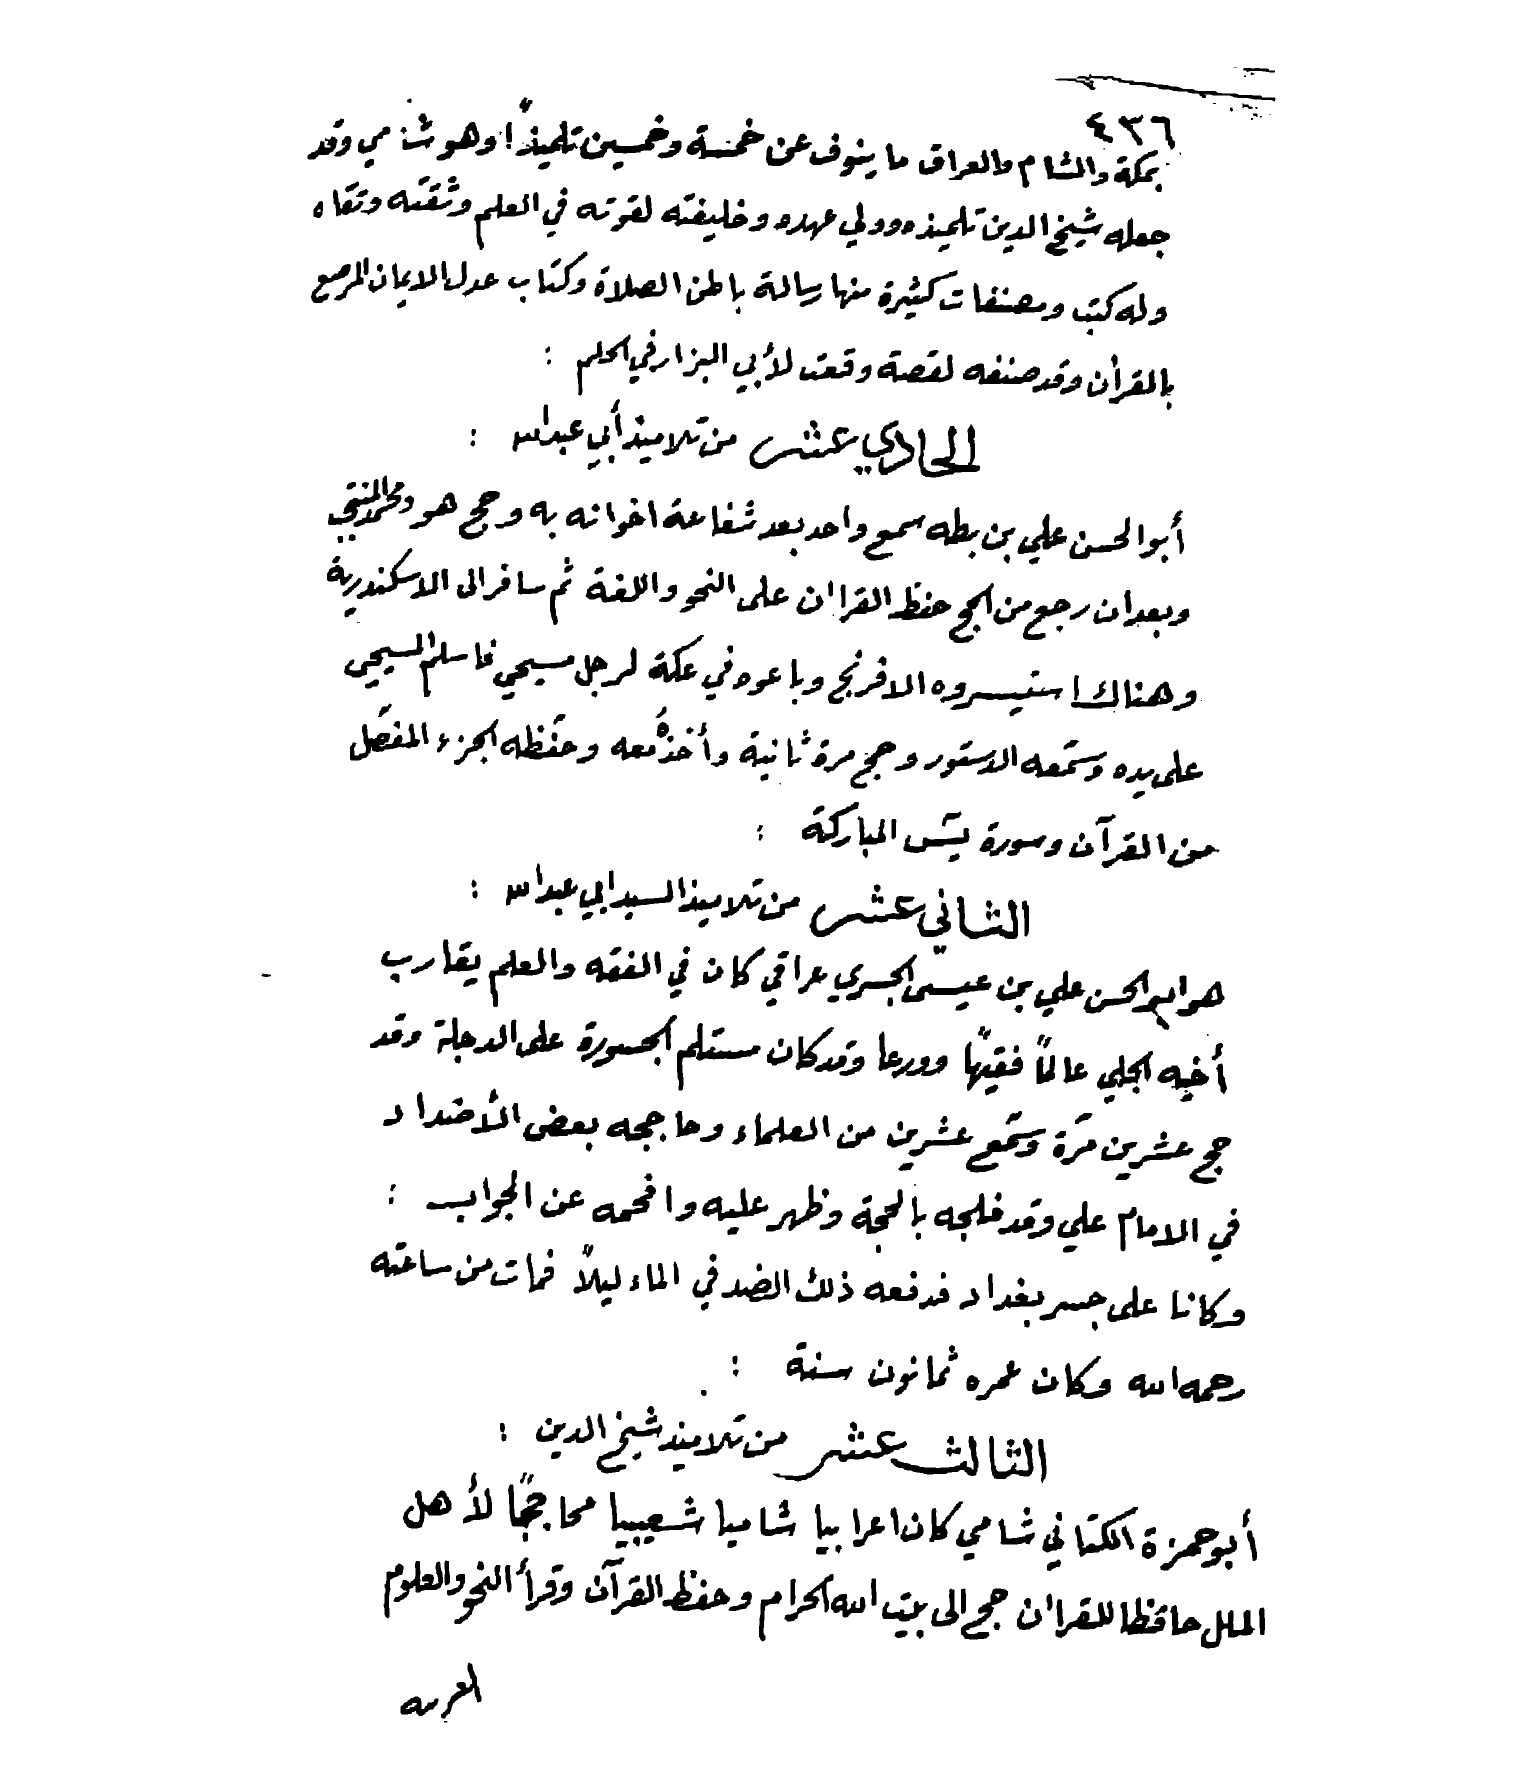 ٤٣٦
بمكة والشام والعراق ما ينوف عن خمسة وخمسين تلميذاً وهو شامي وقد
جعله شيخ الدين تلميذه وولي عهده وخليفته لقوته في العلم وثقته وتقاه
وله كتب ومصنفات كثيرة منها رسالة باطن الصلاة وكتاب عدل الايمان المرصع
بالقرأن وقد صنفه لقصة وقعت لأبي البزار في الحلم :
الحادي عشر من تلاميذ أبي عبدالله :
أبو الحسن علي بن بطه سمع واحد بعد شفاعة اخوانه به وحج هو ومحمد المنتجبي
وبعد ان رجع من الحج حفظ القراان على النحو واللغة ثم سافر الى الاسكندرية
وهناك استيسروه الافرنج وباعوه في عكة لرجل مسيحي فاسلم المسيحي
على يده وسَمّعه الدستور وحج مرة ثانية وأخذهُ معه وحفّظه الجزء المفصّل
من القرآن وسورة يتس المباركة :
الثاني عشر من تلاميذ السيد ابي عبدالله :
هو ابو الحسن علي بن عيسى الجسري عراقي كان في الفقه والعلم يقارب
أخيه الجلي عالماً فقيهاً وورعا وقد كان مستلم الجسورة على الدجلة وقد
حج عشرين مَرّة وسَمّع عشرين من العلماء وحاججه بعض الأضداد
في الامام علي وقد فلجه بالحجة وظهر عليه وافحمه عن الجواب :
وكانا على جسر بغداد فدفعه ذلك الضد في الماء ليلاً فمات من ساعته
رحمه الله وكان عمره ثمانون سنة :
الثالث عشر من تلاميذ شيخ الدين :
أبو حمزة الكتاني شامي كان اعرابيا شاميا شعيبيا محاججاً لأهل
الملل حافظا للقراان حج الى بيت الله الحرام وحفظ القرآن وقرأ النحو والعلوم
العربيه